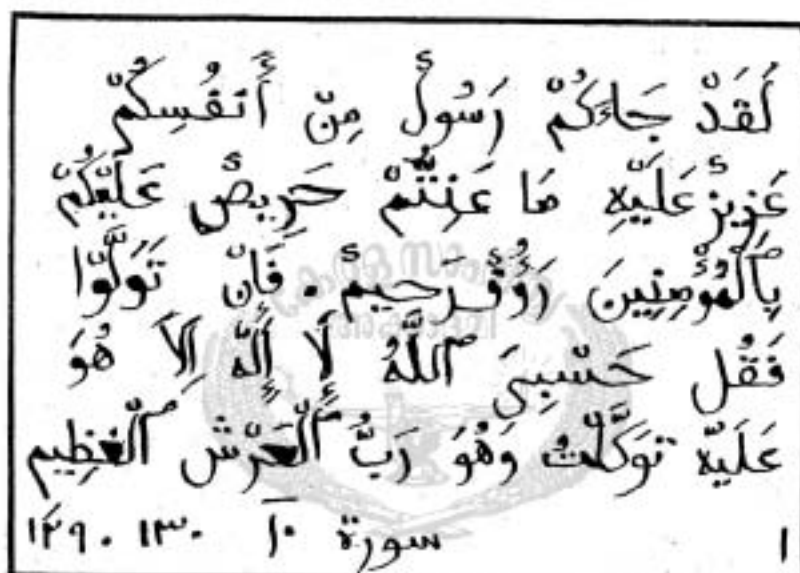 لَقَدْ جَاءَكُمْ رَسُولٌ مِنْ أَنفُسِكُمْ
عَزِيزٌ عَلَيْهِ مَا عَنِتُّمْ حَرِيصٌ عَلَيْكُمْ
بِٱلْمُؤْمِنِينَ رَؤُفٌ رَحِيمٌ. فَإِنْ تَوَلَّوْا
فَقُل حَسْبِىَ ٱللَّهُ لَا إِلَٰهَ إِلَّا هُوَ
عَلَيْهِ تَوَكَّلْتُ وَهُوَ رَبُّ ٱلْعَرْشِ ٱلْعَظِيمِ
١ سورة ١٣٠٠ ١٢٩٠